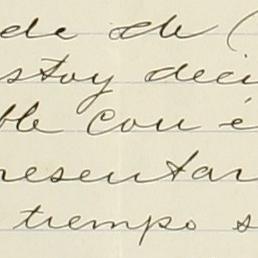 de de (
stoy deci
ble con é
resentar
tiempo s